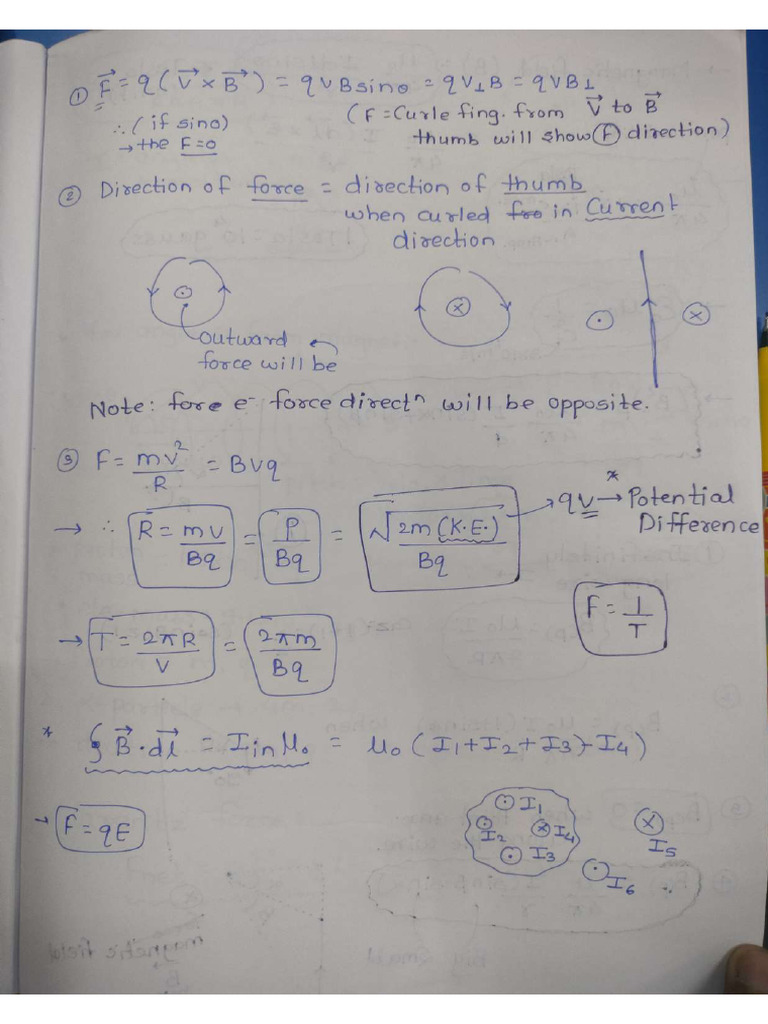 ① F⃗ = q ( V⃗ × B⃗ ) = qVBsinθ = qV⊥B = qVB⊥
∴ ( if sinο)
→ the F=0
( F = Curle fing. from V⃗ to B⃗
thumb will show F direction)
② Direction of force = direction of thumb
when curled in Current
direction
⊙
⊗
⊙ ⊗
outward
force will be
Note: fore e⁻ force directⁿ will be opposite.
③ F = mv²/R = BVq
→ ∴ R = mv/Bq = P/Bq = √2m(K.E.)/Bq → qv → * Potential
Difference
F = 1/T
→ T = 2πR/V = 2πm/Bq
* ∮ B⃗ · dl⃗ = Iin μ₀ = μ₀ ( I1 + I2 + I3 - I4 )
→ F = qE
⊙ I1
⊙ I2 ⊗ I4
⊙ I3
⊗ I5
⊙ I6